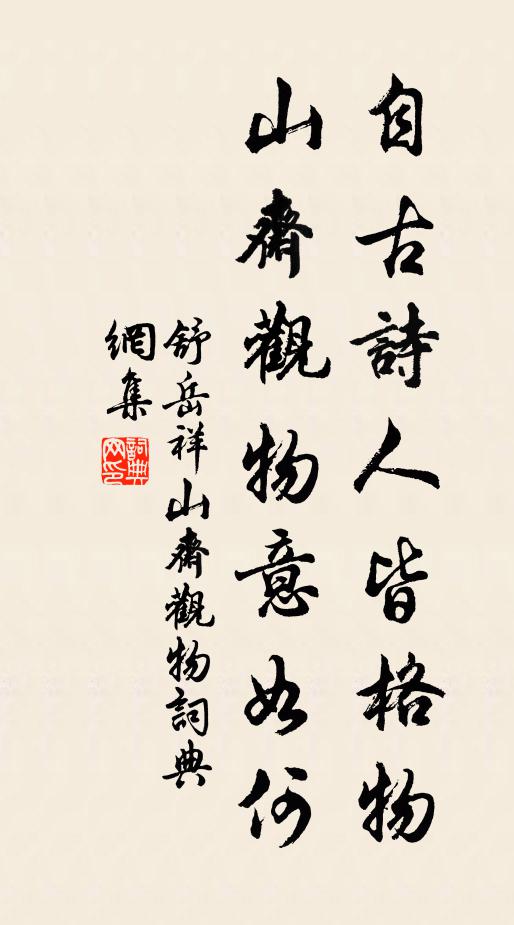 自古詩人皆格物
山齋觀物意如何
舒岳祥山齋觀物詞典
網集
詞典
网印